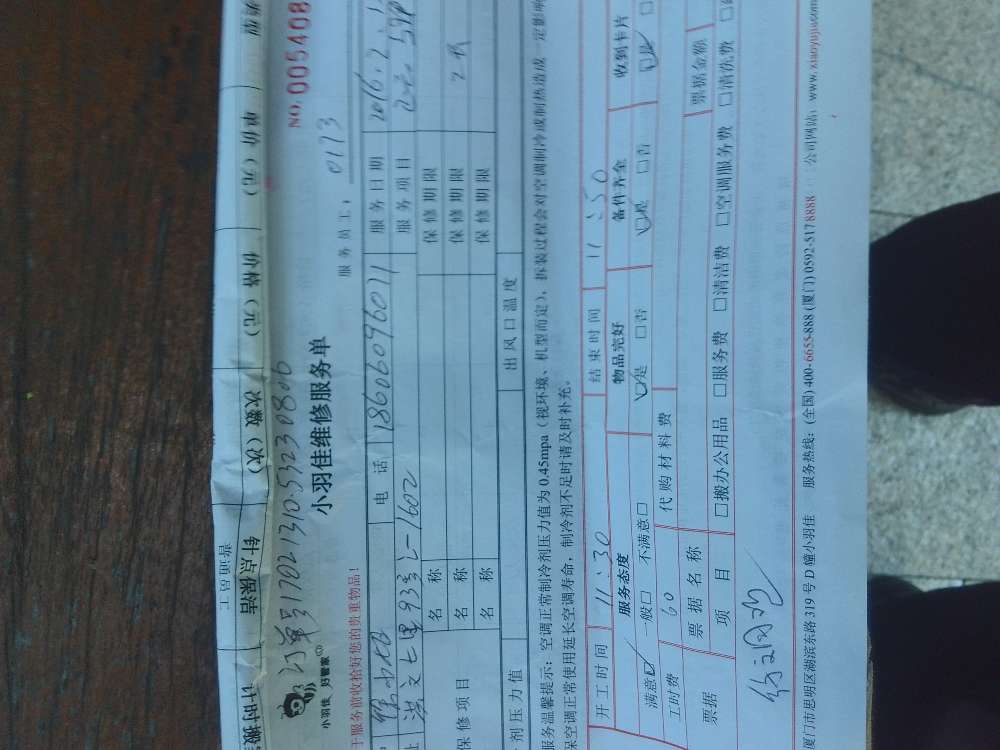 单价（元） 价格（元） 次数（次） 针点保洁 计时搬
普通员工
NO.005408
订单号17021310.5323080b
小羽佳 好管家
小羽佳维修服务单
服务员工： 0173
于服务前收拾好您的贵重物品！
电 话 18606096011 服务日期
洪文七里93号之一1602 服务项目
保修项目
名 称 保修期限
名 称 保修期限
名 称 保修期限
剂压力值 出风口温度
服务温馨提示：空调正常制冷剂压力值为0.45mpa（视环境、机型而定），拆装过程会对空调制冷或制热造成一定影响
保空调正常使用延长空调寿命，制冷剂不足时请及时补充。
开工时间 11:30 结束时间 11:50
服务态度 物品完好 备件齐全 收到卡片
满意☑ 一般□ 不满意□ ☑是 □否 ☑是 □否 ☑是 □
工时费 60 代购材料费
票据 票据名称 票据金额
项 目 □搬办公用品 □服务费 □清洁费 □空调服务费 □清洗费
厦门市思明区湖滨东路319号D幢小羽佳 服务热线：(全国)400-6655-888 (厦门)0592-5178888 公司网站：www.xiaoyujia.com